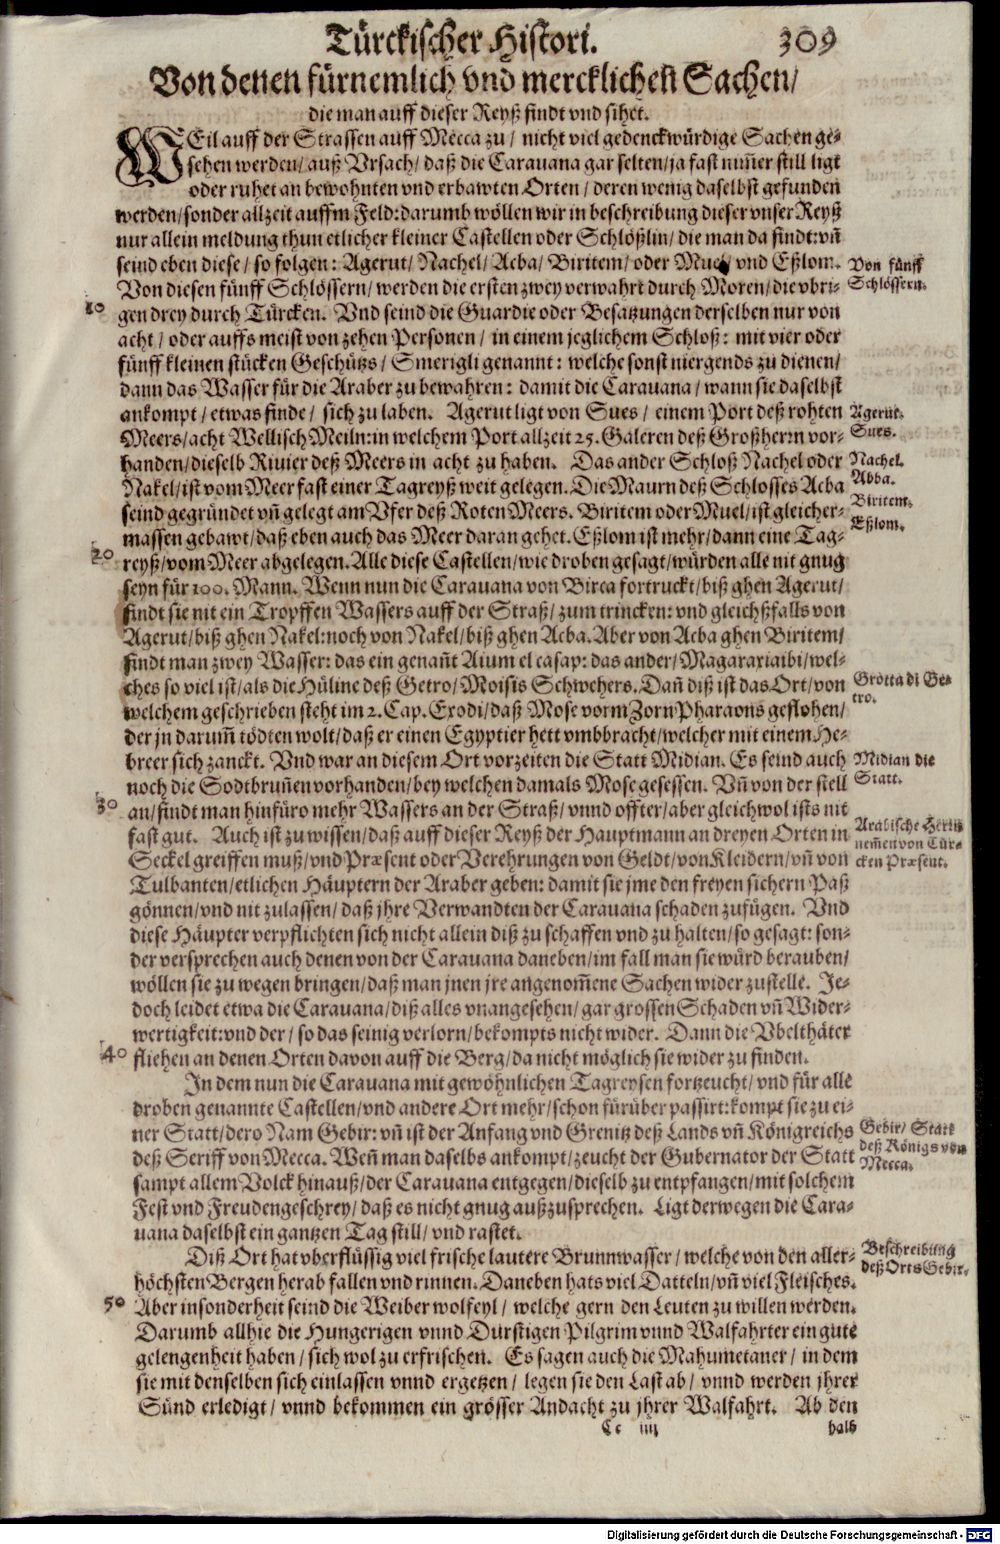 Türckischer Histori. 309
Von denen fürnemlich vnd mercklichen Sachen/
die man auff dieser Reyß findt vnd sihet.
WEil auff der Strassen auff Mecca zu/ nicht viel gedenckwürdige Sachen ge-
sehen werden/ auß Vrsach/ daß die Carauana gar selten/ ja fast nim̃er still ligt
oder ruhet an bewohnten vnd erbawten Orten/ deren wenig daselbst gefunden
werden/ sonder allzeit auffm Feld: darumb wöllen wir in beschreibung dieser vnser Reyß
nur allein meldung thun etlicher kleiner Castellen oder Schlößlin/ die man da findt: vñ
seind eben diese/ so folgen: Agerut/ Nachel/ Acba/ Biritem/ oder Muel/ vnd Eßlom.
Von fünff
Schlössern.
Von diesen fünff Schlössern/ werden die ersten zwey verwahrt durch Moren/ die vbri-
10 gen drey durch Türcken. Vnd seind die Guardie oder Besatzungen derselben nur von
acht/ oder auffs meist von zehen Personen/ in einem jeglichem Schloß: mit vier oder
fünff kleinen stücken Geschütz/ Smerigli genannt: welche sonst niergends zu dienen/
dann das Wasser für die Araber zu bewahren: damit die Carauana/ wann sie daselbst
ankompt/ etwas finde/ sich zu laben. Agerut ligt von Sues/ einem Port deß rohten
Agerut.
Meers/ acht Wellisch Meiln: in welchem Port allzeit 25. Galeren deß Großherrn vor-
Sues.
handen/ dieselb Rivier deß Meers in acht zu haben. Das ander Schloß Nachel oder
Nachel.
Nakel/ ist vom Meer fast einer Tagreyß weit gelegen. Die Maurn deß Schlosses Acba
Abba.
seind gegründet vñ gelegt am Vfer deß Roten Meers. Biritem oder Muel/ ist gleicher-
Biritem.
massen gebawt/ daß eben auch das Meer daran gehet. Eßlom ist mehr/ dann eine Tag-
Eßlom.
20 reyß/ vom Meer abgelegen. Alle diese Castellen/ wie droben gesagt/ würden alle nit gnug
seyn für 100. Mann. Wenn nun die Carauana von Birca fortruckt/ biß ghen Agerut/
findt sie nit ein Tropffen Wassers auff der Straß/ zum trincken: vnd gleichßfalls von
Agerut/ biß ghen Nakel: noch von Nakel/ biß ghen Acba. Aber von Acba ghen Biritem/
findt man zwey Wasser: das ein genañt Aium el casap: das ander/ Magaraxiaibi/ wel-
ches so viel ist/ als die Hüline deß Getro/ Moisis Schwehers. Dañ diß ist das Ort/ von
Grotta di Ge-
tro.
welchem geschrieben steht im 2. Cap. Exodi/ daß Mose vorm Zorn Pharaons geflohen/
der jn darum̃ tödten wolt/ daß er einen Egyptier hett vmbbracht/ welcher mit einem He-
breer sich zanckt. Vnd war an diesem Ort vorzeiten die Statt Midian. Es seind auch
Midian die
Statt.
noch die Sodtbruñen vorhanden/ bey welchen damals Mose gesessen. Vñ von der stell
30 an/ findt man hinfüro mehr Wassers an der Straß/ vnnd offter/ aber gleichwol ists nit
fast gut. Auch ist zu wissen/ daß auff dieser Reyß der Hauptmann an dreyen Orten in
Arabische Herrn
nem̃en von Tür-
cken Præsent.
Seckel greiffen muß/ vnd Præsent oder Verehrungen von Geldt/ von Kleidern/ vñ von
Tulbanten/ etlichen Häuptern der Araber geben: damit sie jme den freyen sichern Paß
gönnen/ vnd nit zulassen/ daß jhre Verwandten der Carauana schaden zufügen. Vnd
diese Häupter verpflichten sich nicht allein diß zu schaffen vnd zu halten/ so gesagt: son-
der versprechen auch denen von der Carauana daneben/ im fall man sie würd berauben/
wöllen sie zu wegen bringen/ daß man jnen jre angenom̃ene Sachen wider zustelle. Je-
doch leidet etwa die Carauana/ diß alles vnangesehen/ gar grossen Schaden vñ Wider-
wertigkeit: vnd der/ so das seinig verlorn/ bekompts nicht wider. Dann die Vbelthäter
40 fliehen an denen Orten davon auff die Berg/ da nicht möglich sie wider zu finden.
In dem nun die Carauana mit gewöhnlichen Tagreysen fortzeucht/ vnd für alle
droben genannte Castellen/ vnd andere Ort mehr/ schon fürüber passirt: kompt sie zu ei-
ner Statt/ dero Nam Gebir: vñ ist der Anfang vnd Grenitz deß Lands vñ Königreichs
Gebir/ Statt
deß Königs von
Mecca.
deß Seriff von Mecca. Weñ man daselbs ankompt/ zeucht der Gubernator der Statt
sampt allem Volck hinauß/ der Carauana entgegen/ dieselb zu entpfangen/ mit solchem
Fest vnd Freudengeschrey/ daß es nicht gnug außzusprechen. Ligt derwegen die Cara-
uana daselbst ein gantzen Tag still/ vnd rastet.
Diß Ort hat vberflüssig viel frische lautere Brunnwasser/ welche von den aller-
Beschreibung
deß Orts Gebir.
höchsten Bergen herab fallen vnd rinnen. Daneben hats viel Datteln/ vñ viel Fleisches.
50 Aber insonderheit seind die Weiber wolfeyl/ welche gern den Leuten zu willen werden.
Darumb allhie die Hungerigen vnnd Durstigen Pilgrim vnnd Walfahrter ein gute
gelengenheit haben/ sich wol zu erfrischen. Es sagen auch die Mahumetaner/ in dem
sie mit denselben sich einlassen vnnd ergetzen/ legen sie den Last ab/ vnnd werden jhrer
Sünd erledigt/ vnnd bekommen ein grösser Andacht zu jhrer Walfahrt. Ab den
Cc iiij halb
Digitalisierung gefördert durch die Deutsche Forschungsgemeinschaft - DFG